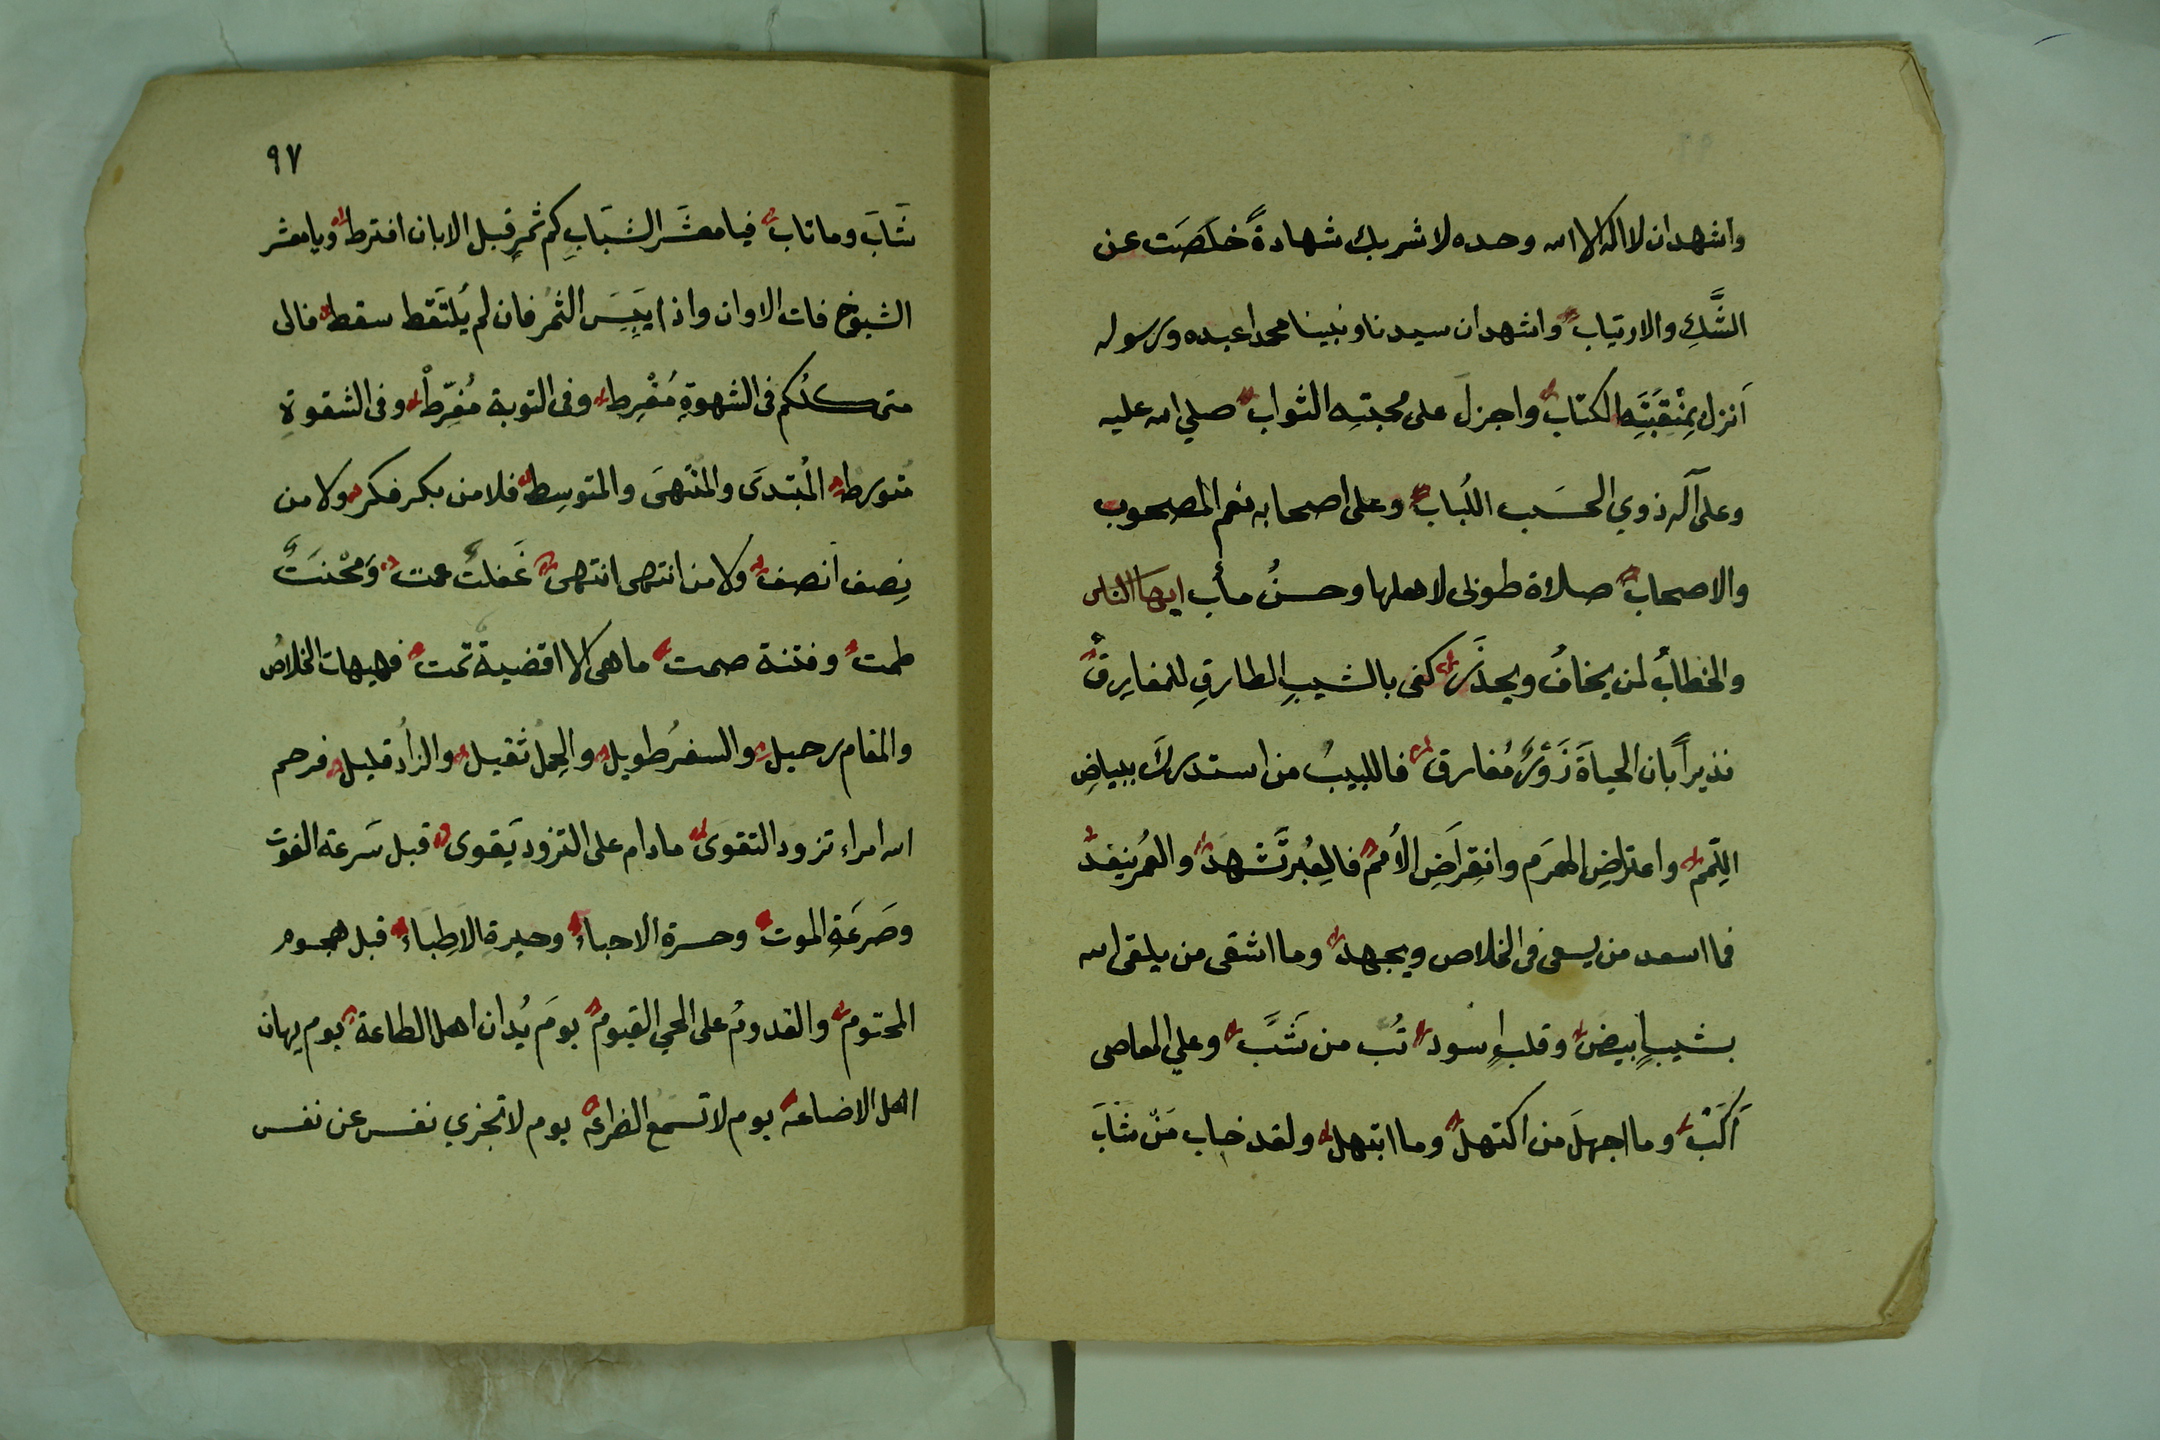 واشهد ان لا اله الا الله وحده لا شريك شهادةً خلَصَت عن
الشَّكِ والارتياب واشهد ان سيدنا ونبينا محمدا عبده ورسوله
اَنزل بِمَنْقَبَتِه الكتاب واجزلَ على محبتِه الثواب صلي الله عليه
وعلى آله ذوي الحسَب اللُباب وعلى اصحابه نعم المصحوب
والاصحاب صلاة طوبى لاهلها وحسنُ مأب ايها الناس
والخطابُ لمن يخافُ ويحذَر كفى بالشيبِ الطارقِ للمفارِقِ
نذيراً بان الحياةَ زَوْرٌ مُفارق فاللبيبُ من استدركَ ببياضِ
اللِّمم واعتراضِ الهرَم وانقِراضِ الأمم فالعِبْر تَشهد والعمُر ينفد
فما اسعد من يسعى في الخلاص ويجهد وما اشقى من يلقى الله
بشيبٍ ابيض وقلبٍ اسود تُب من شَبَّ وعلي المعاصي
اَكَبّ وما اجهلَ من اكتهل وما ابتهل ولقد خاب مَنْ شَابَ
٩٧
شَابَ وما تاب فيا معشَر الشبَابِ كم ثمرٍ قبل الابان افترط ويا معشر
الشيوخ فات الاوان واذا يَبِسَ الثمُر فان لم يُلتَقط سقط فالى
متى كلُكم في الشهوةِ مُفْرِط وفى التوبة مُفرِّطْ وفى الشقوةِ
مُتورط المُبتدَى والمُنتهىَ والمتوسِط فلا من بكر فكر ولا من
نِصف اَنصف ولا من انتهى انتهى غَفلتٌ عمت وَمحْنَتٌ
طمت وفتنة صمت ما هى الا اقضيةٌ تمت فهيهات الخلاصُ
والمقام رحيل والسفرُ طويل والحِملُ ثقيل والزادُ قليل فرحم
الله امراء تزود التقوىَ ما دام على التزودِ يَقوى قبل سَرعة الفوتِ
وصَرعَةِ الموت وحسرةِ الاحباء وحيرةِ الاَطِباء قبل هجوم
المحتوم والقدومُ على الحي القيوم يومَ يُدان اهل الطاعة يوم يهانُ
اهل الاضاعة يوم لا تسمَع الضراعة يوم لا تجزي نفس عن نفس